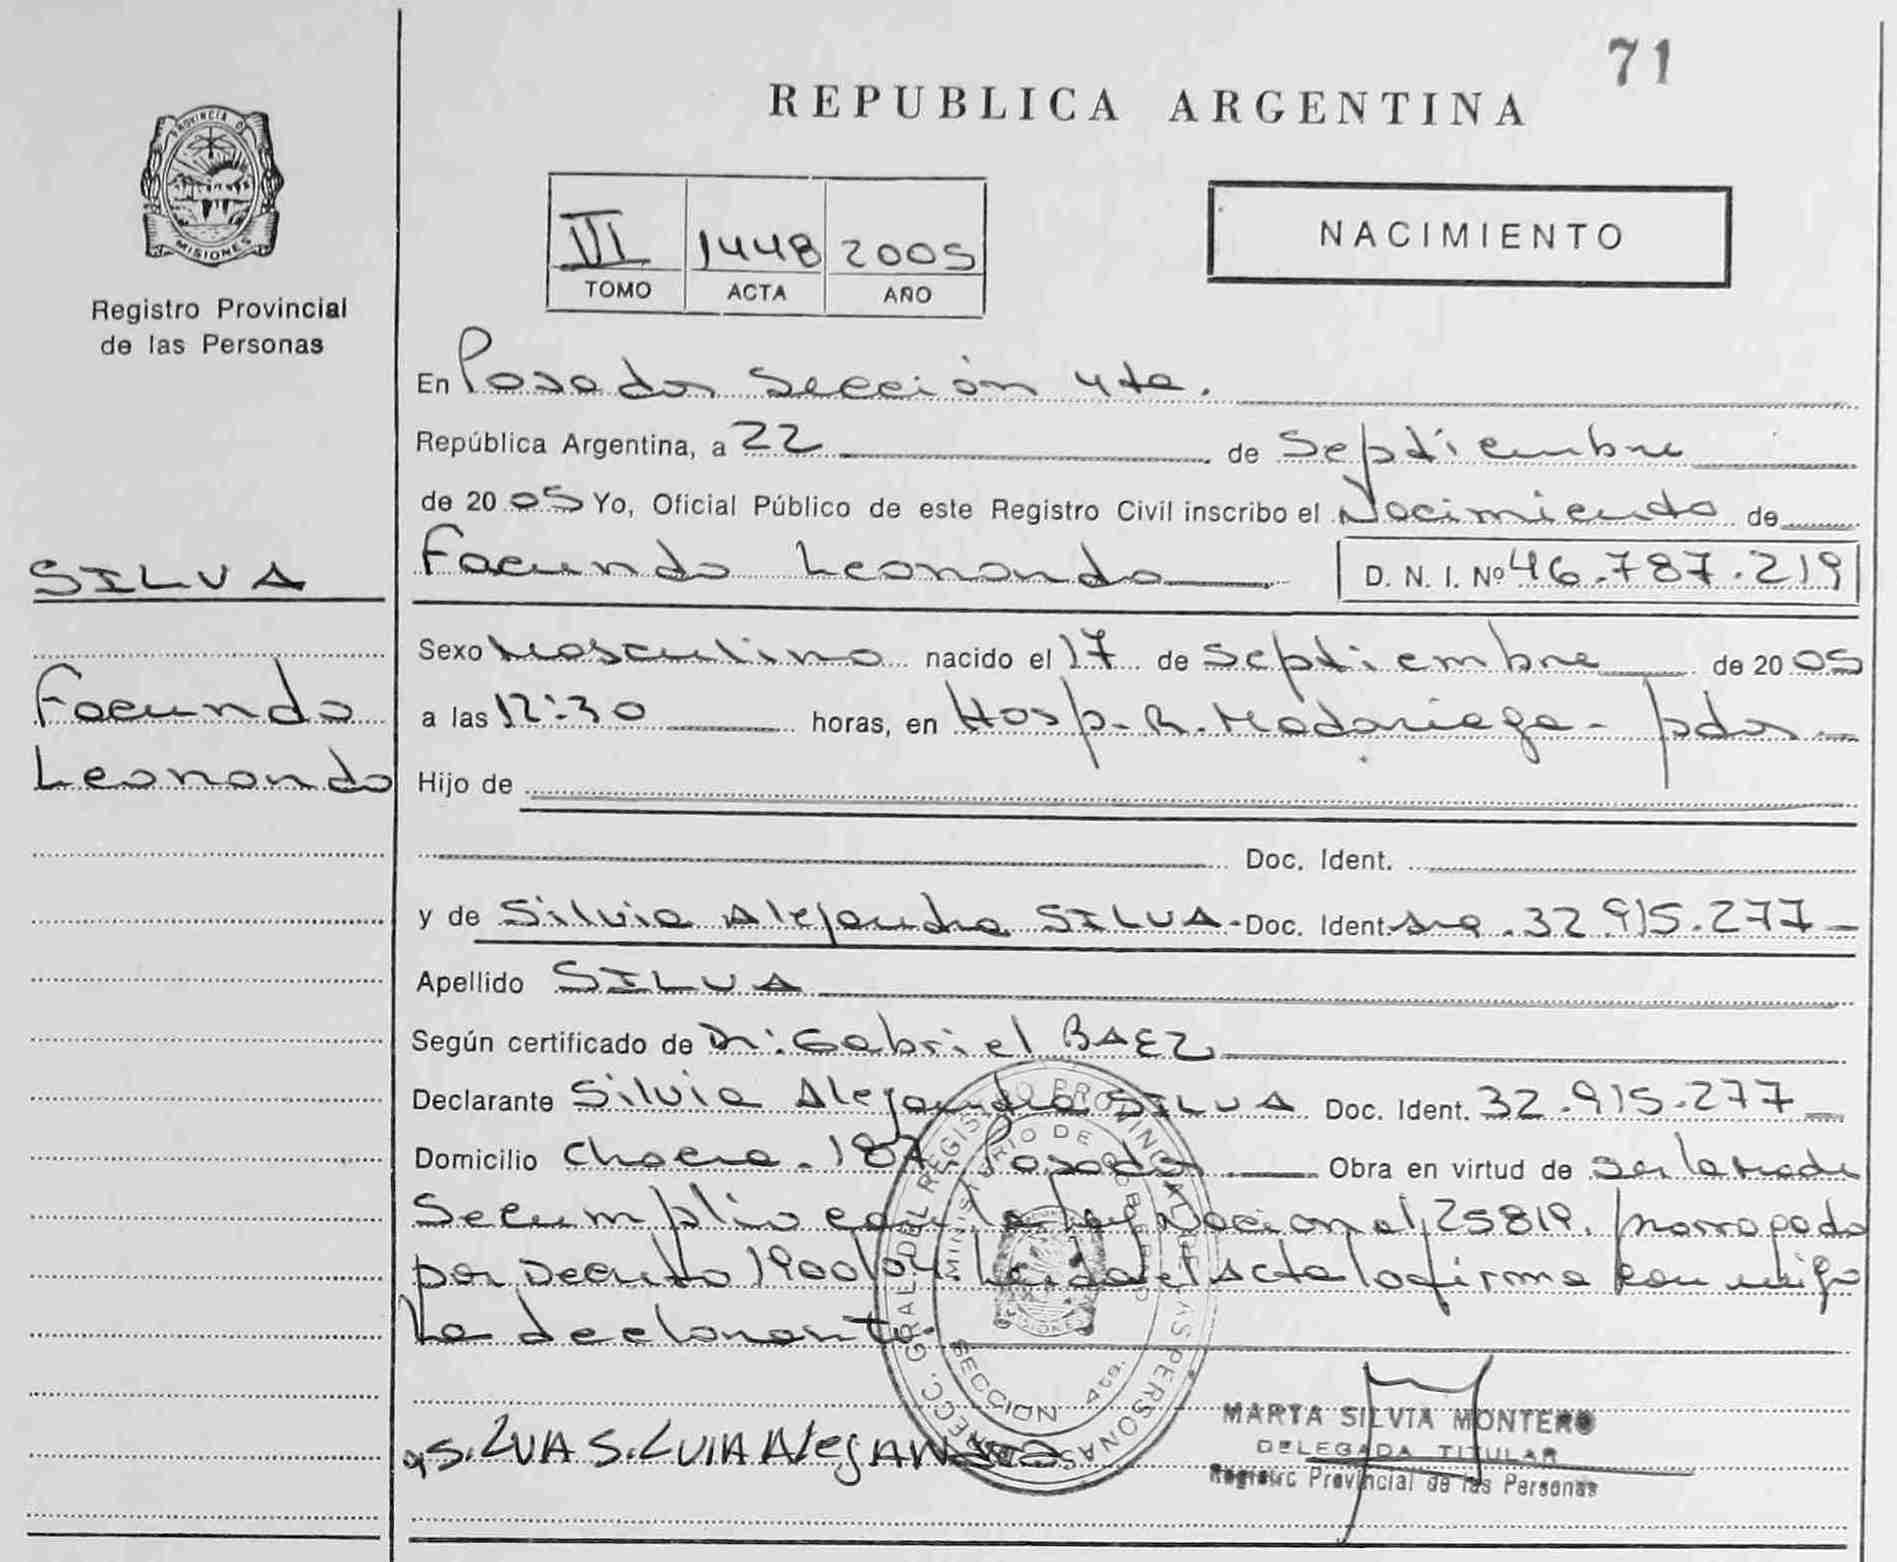 71
REPUBLICA ARGENTINA
PROVINCIA DE
MISIONES
Registro Provincial
de las Personas
III 1448 2005
TOMO ACTA AÑO
NACIMIENTO
En Posadas Sección 4ta.
República Argentina, a 22 de Septiembre
de 2005 Yo, Oficial Público de este Registro Civil inscribo el Nacimiento de
SILVA
Facundo Leonardo D. N. I. Nº 46.787.219
Sexo Masculino nacido el 17 de Septiembre de 2005
Facundo
a las 12:30 horas, en Hosp. R. Madariaga - pdas
Leonardo
Hijo de
Doc. Ident.
y de Silvia Alejandra SILVA - Doc. Ident 32.915.277
Apellido SILVA
Según certificado de Dr: Gabriel BAEZ
Declarante Silvia Alejandra SILVA Doc. Ident. 32.915.277
Domicilio Chacra. 187 Posadas Obra en virtud de ser la madre
Se cumplio con la ley Nacional 25819. prorrogado
por Decreto 1900/04 Leida el Acta la firma conmigo
La declarante.
DIRECC. GRAL. DEL REGISTRO PROVINCIAL DE LAS PERSONAS
MINISTERIO DE GOBIERNO
MISIONES
SECCION 4ta.
SiLVA SiLVIA AlejANdra
MARTA SILVIA MONTERO
DELEGADA TITULAR
Registro Provincial de las Personas